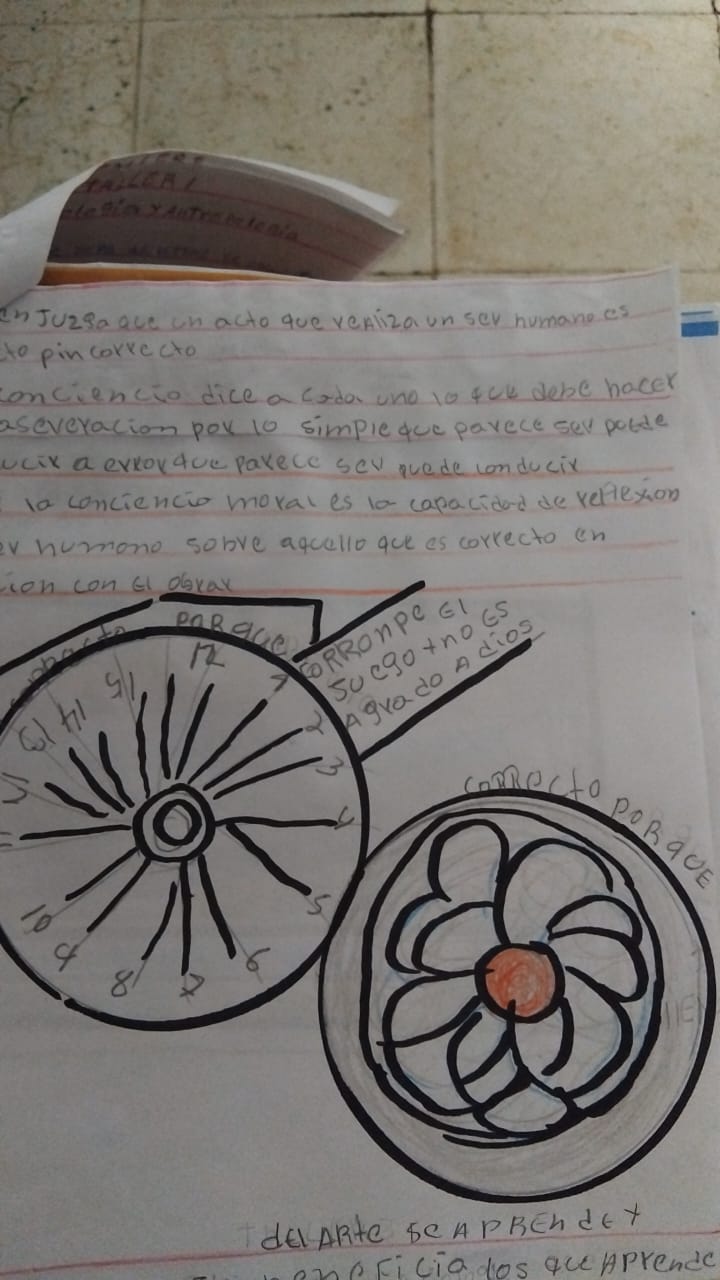 TALLER 1
en Juzga que un acto que realiza un ser humano es
cto pincorrecto
conciencio dice a cada uno lo que debe hacer
aseveracion por lo simple que parece ser potde
ucir a error que parece ser puede conducir
la conciencio moral es la capacidad de reflexion
er humono sobre aquello que es correcto en
cion con El obrar
PORque
CORRONPE El
SUego + no ES
Agrado A dios
12
1
2
3
4
5
6
7
8
9
10
13
14
15
CORRecto PORQUE
del ARte Se APRENdE Y
beneficiados que Aprende